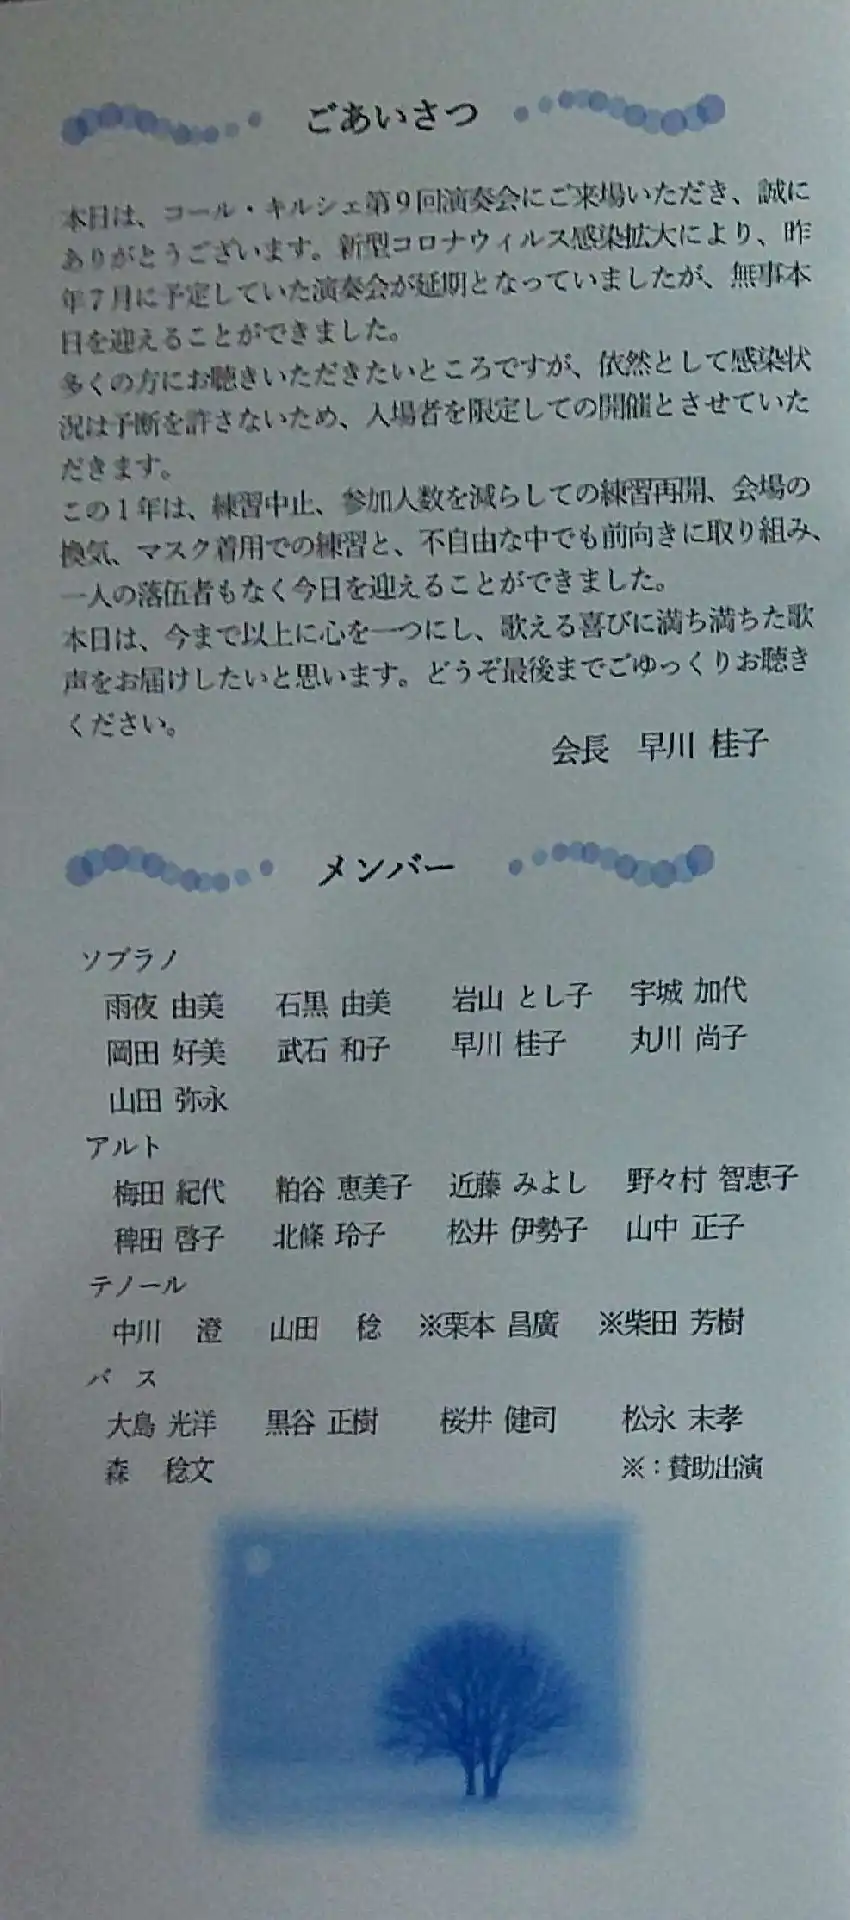 ごあいさつ
本日は、コール・キルシェ第9回演奏会にご来場いただき、誠に
ありがとうございます。新型コロナウィルス感染拡大により、昨
年7月に予定していた演奏会が延期となっていましたが、無事本
日を迎えることができました。
多くの方にお聴きいただきたいところですが、依然として感染状
況は予断を許さないため、入場者を限定しての開催とさせていた
だきます。
この1年は、練習中止、参加人数を減らしての練習再開、会場の
換気、マスク着用での練習と、不自由な中でも前向きに取り組み、
一人の落伍者もなく今日を迎えることができました。
本日は、今まで以上に心を一つにし、歌える喜びに満ち満ちた歌
声をお届けしたいと思います。どうぞ最後までごゆっくりお聴き
ください。
会長 早川 桂子
メンバー
ソプラノ
雨夜 由美 石黒 由美 岩山 とし子 宇城 加代
岡田 好美 武石 和子 早川 桂子 丸川 尚子
山田 弥永
アルト
梅田 紀代 粕谷 恵美子 近藤 みよし 野々村 智恵子
稗田 啓子 北條 玲子 松井 伊勢子 山中 正子
テノール
中川 澄 山田 稔 ※栗本 昌廣 ※柴田 芳樹
バス
大島 光洋 黒谷 正樹 桜井 健司 松永 末孝
森 稔文 ※：賛助出演